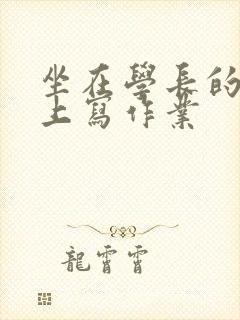 坐在學長的
上寫作業
龍霄霄